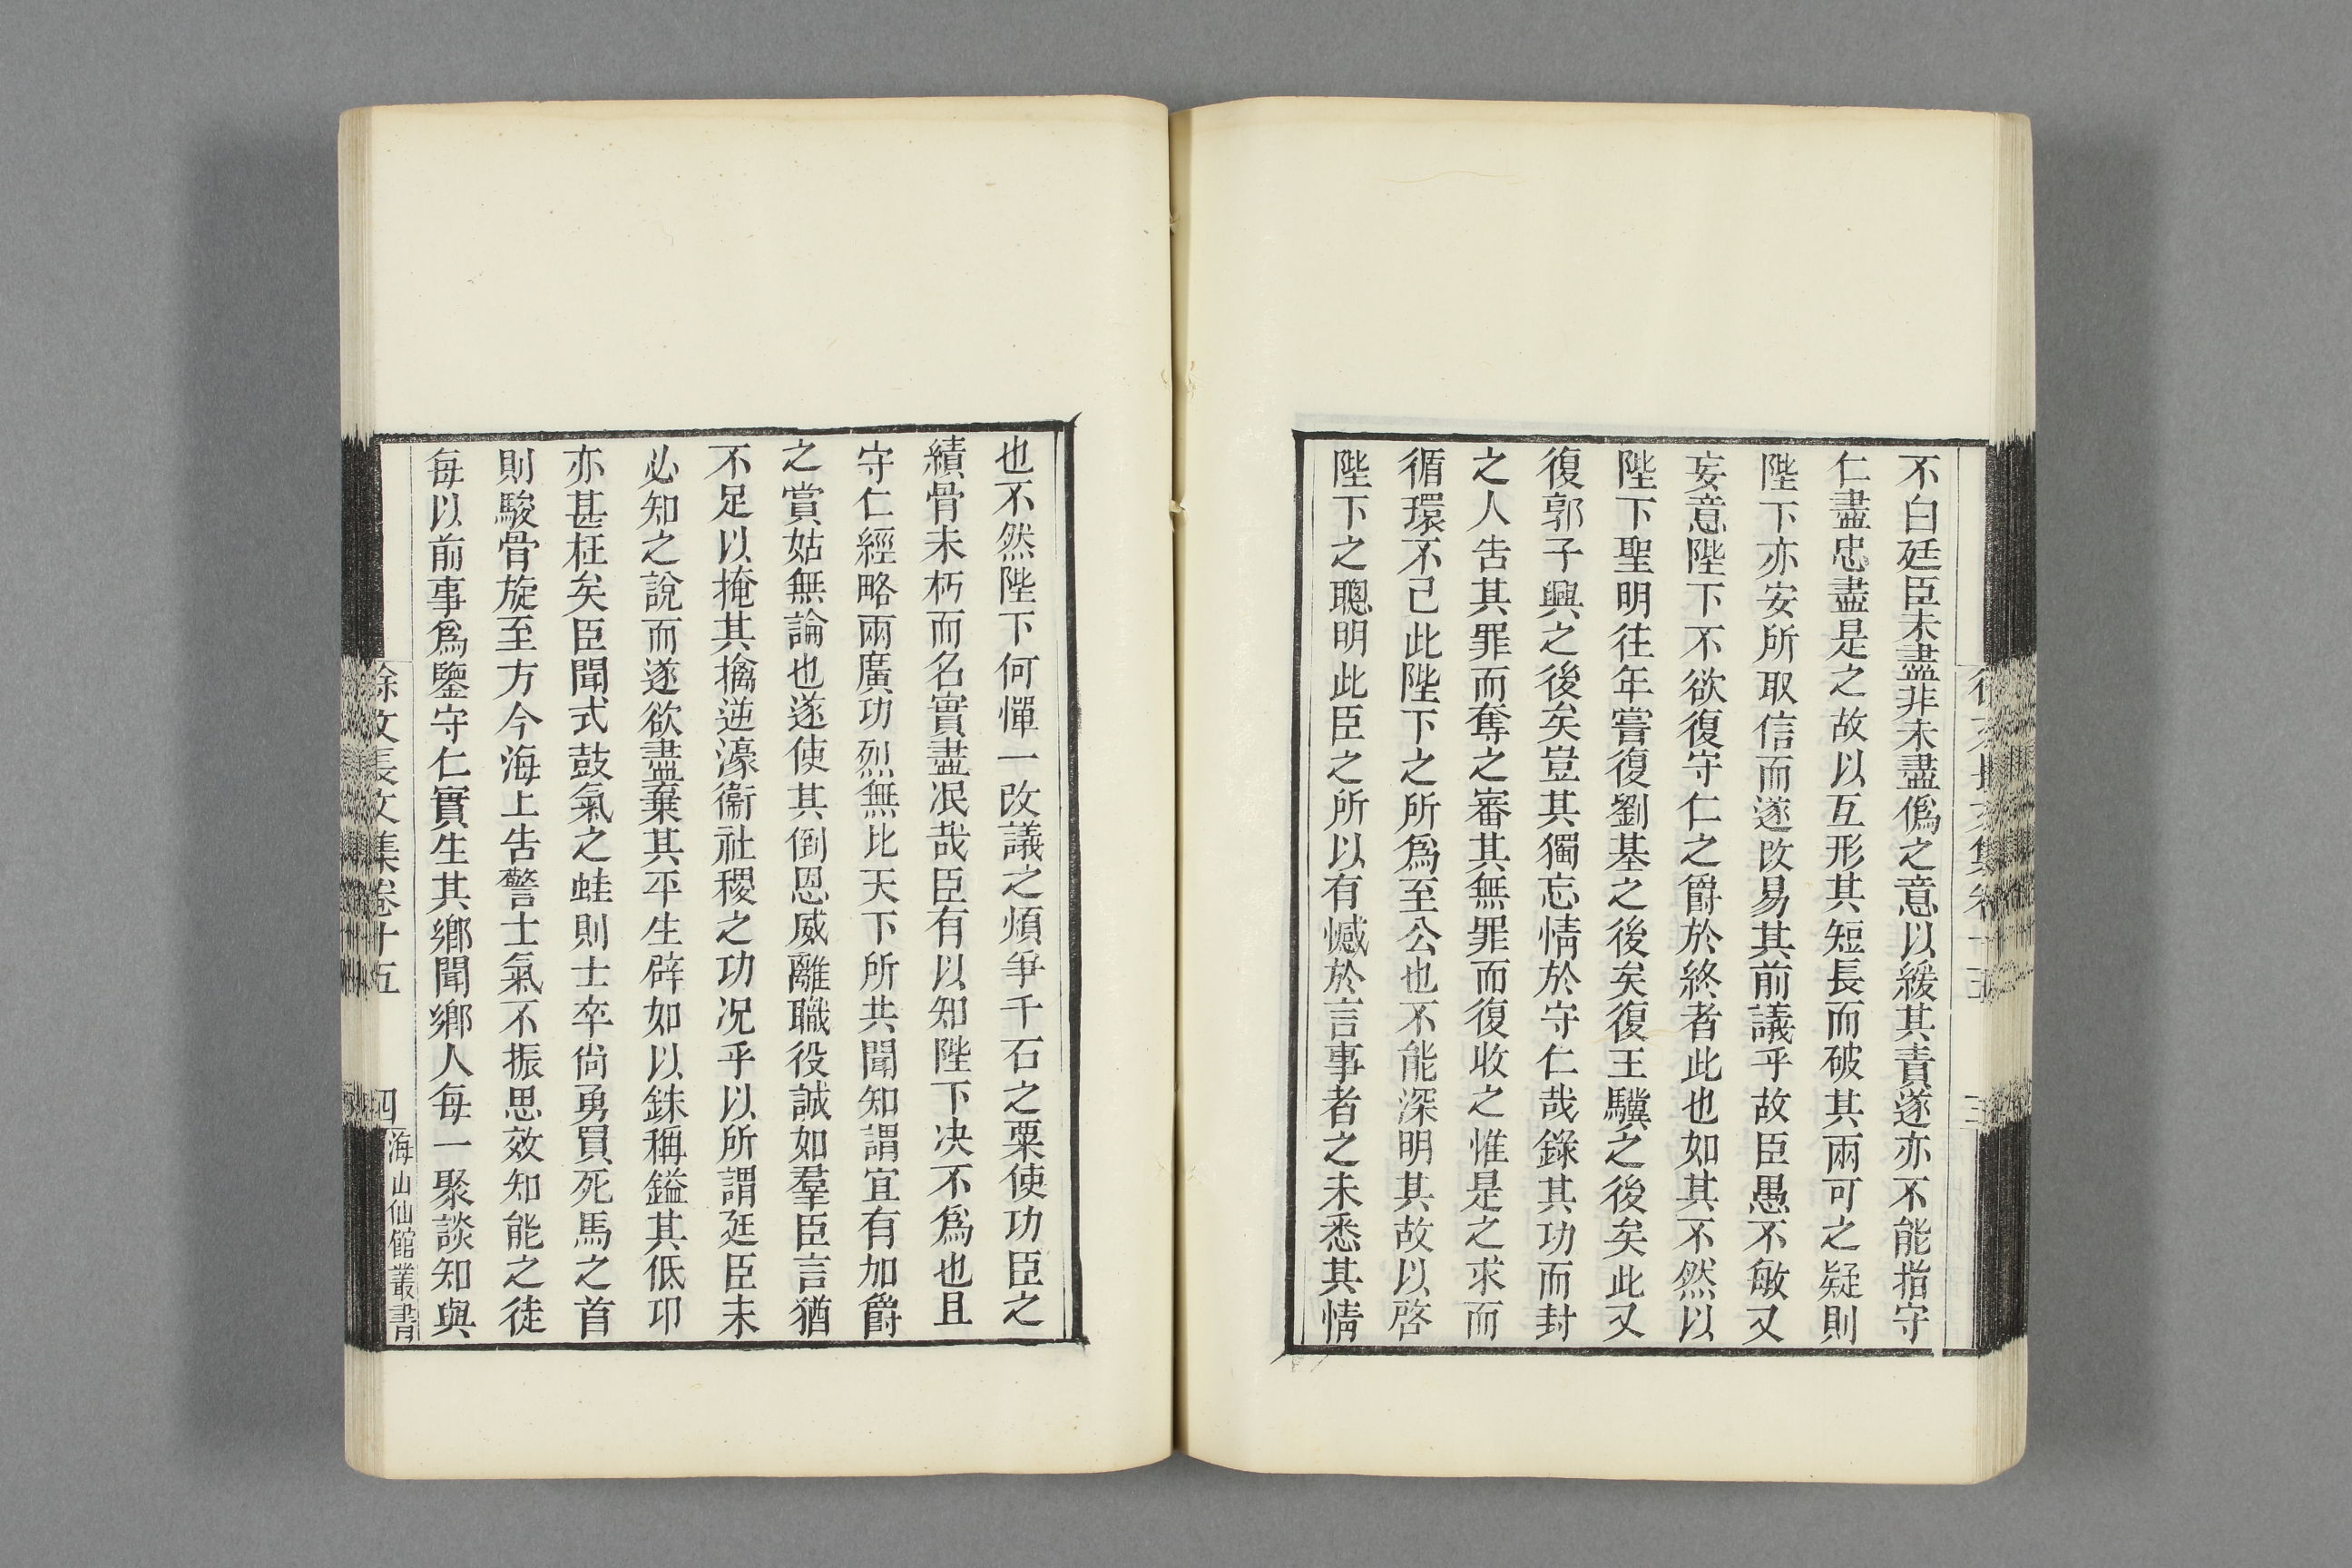 不白廷臣未盡非未盡僞之意以緩其責遂亦不能指守
仁盡忠盡是之故以互形其短長而破其兩可之疑則
陛下亦安所取信而遂改易其前議乎故臣愚不敏又
妄意陛下不欲復守仁之爵於終者此也如其不然以
陛下聖明往年嘗復劉基之後矣復王驥之後矣此又
復郭子興之後矣豈其獨忘情於守仁哉錄其功而封
之人告其罪而奪之審其無罪而復收之惟是之求而
循環不己此陛下之所爲至公也不能深明其故以啓
陛下之聰明此臣之所以有憾於言事者之未悉其情
也不然陛下何憚一改議之煩爭千石之粟使功臣之
績骨未朽而名實盡泯哉臣有以知陛下决不爲也且
守仁經略兩廣功烈無比天下所共聞知謂宜有加爵
之賞姑無論也遂使其倒恩威離職役誠如羣臣言猶
不足以掩其擒逆濠衞社稷之功况乎以所謂廷臣未
必知之說而遂欲盡棄其平生辟如以銖稱鎰其低卬
亦甚枉矣臣聞式鼓氣之蛙則士卒尙勇買死馬之首
則駿骨旋至方今海上告警士氣不振思效知能之徒
每以前事爲鑒守仁實生其鄉聞鄉人每一聚談知與
徐文長文集卷十五
四
海山仙館叢書